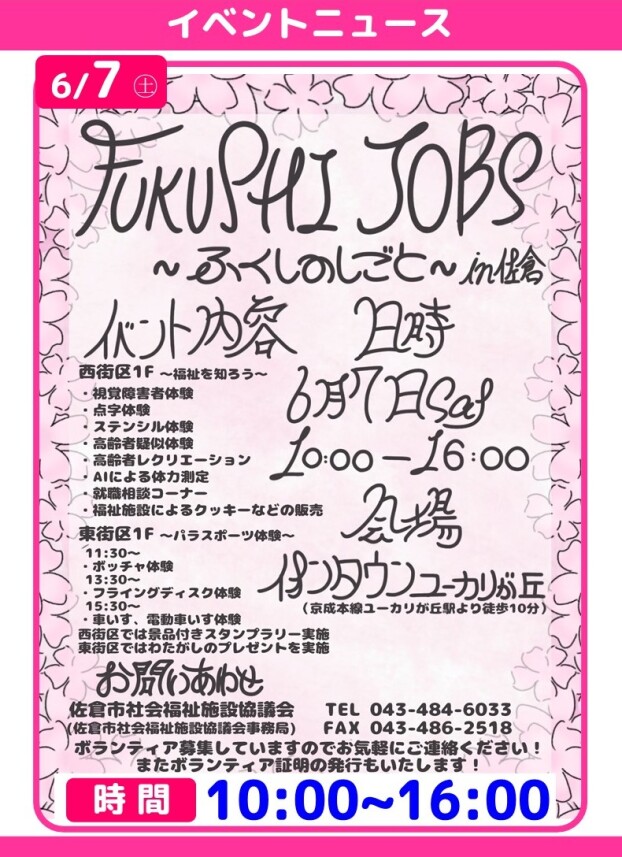 イベントニュース
6/7 ㊏
FUKUSHI JOBS
～ふくしのしごと～ in佐倉
イベント内容
西街区1F ～福祉を知ろう～
・視覚障害者体験
・点字体験
・ステンシル体験
・高齢者疑似体験
・高齢者レクリエーション
・AIによる体力測定
・就職相談コーナー
・福祉施設によるクッキーなどの販売
東街区1F ～パラスポーツ体験～
11:30～
・ボッチャ体験
13:30～
・フライングディスク体験
15:30～
・車いす、電動車いす体験
西街区では景品付きスタンプラリー実施
東街区ではわたがしのプレゼントを実施
日時
6月7日Sat
10:00-16:00
会場
イオンタウンユーカリが丘
(京成本線ユーカリが丘駅より徒歩10分)
お問いあわせ
佐倉市社会福祉施設協議会 TEL 043-484-6033
(佐倉市社会福祉施設協議会事務局) FAX 043-486-2518
ボランティア募集していますのでお気軽にご連絡ください！
またボランティア証明の発行もいたします！
時間 10:00~16:00